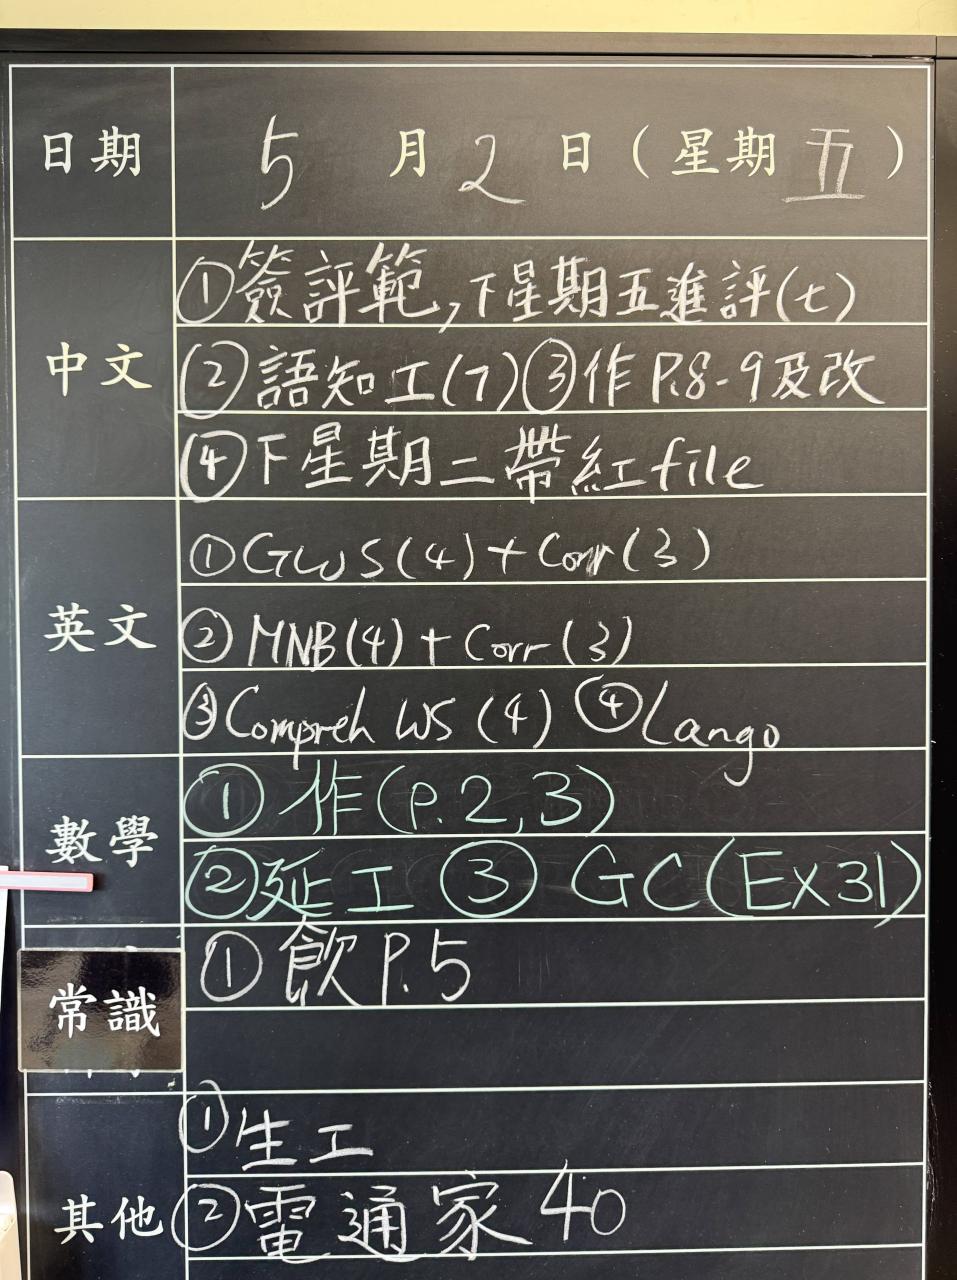 日期 5月2日(星期五)
中文
①簽評範,下星期五進評(七)
②語知工(7)③作P.8-9及改
④下星期二帶紅file
英文
①GWS(4)+Corr(3)
②MNB(4)+Corr(3)
③Compreh WS(4) ④Lango
數學
①作(p.2,3)
②延工 ③GC(Ex31)
常識
①飲P.5
其他
①生工
②電通家40